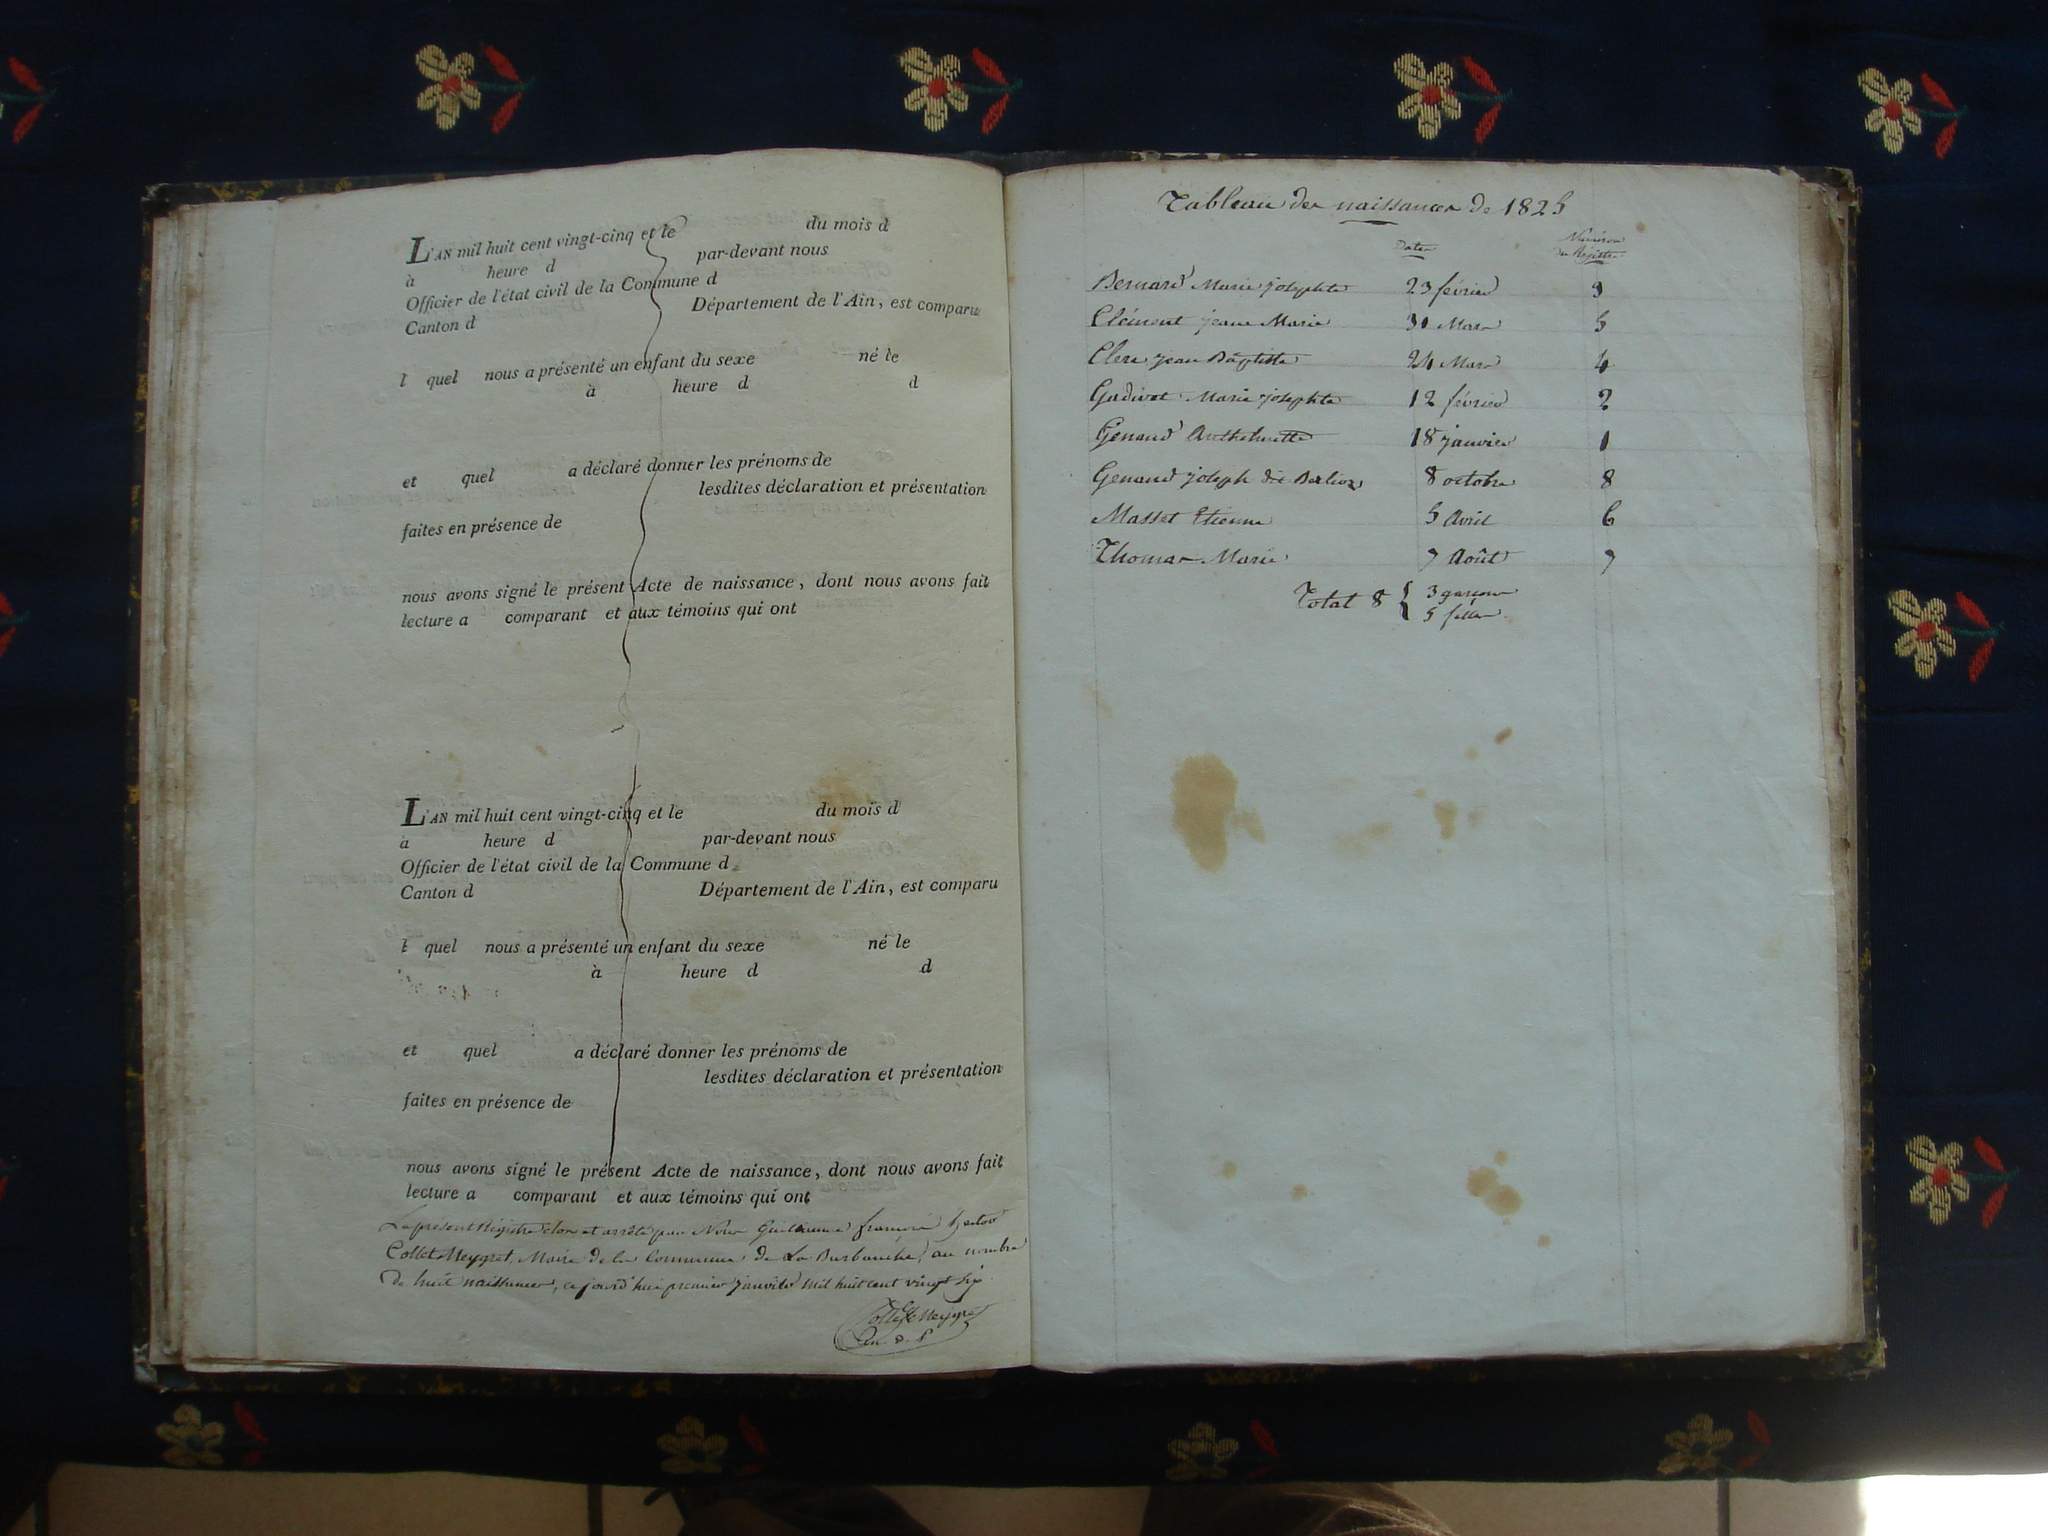 L'AN mil huit cent vingt-cinq et le du mois d
à heure d par-devant nous
Officier de l'état civil de la Commune d
Canton d Département de l'Ain, est comparu
l quel nous a présenté un enfant du sexe né le
à heure d d
et quel a déclaré donner les prénoms de
lesdites déclaration et présentation
faites en présence de
nous avons signé le présent Acte de naissance, dont nous avons fait
lecture a comparant et aux témoins qui ont
L'AN mil huit cent vingt-cinq et le du mois d
à heure d par-devant nous
Officier de l'état civil de la Commune d
Canton d Département de l'Ain, est comparu
l quel nous a présenté un enfant du sexe né le
à heure d d
et quel a déclaré donner les prénoms de
lesdites déclaration et présentation
faites en présence de
nous avons signé le présent Acte de naissance, dont nous avons fait
lecture a comparant et aux témoins qui ont
Le présent Régistre clos et arrêté par Nous Guillaume françois hector
Collet Meygret, Maire de la Commune de La Burbanche, au nombre
de huit naissances, ce jourd'hui premier janvier mil huit cent vingt six
Collet Meygret
Tableau des naissances de 1825
Dates Numéros
du Régistre
Bernard Marie josephte 23 février 3
Clément jeanne Marie 31 Mars 5
Clerc jean Baptiste 24 Mars 4
Gudivet Marie josephte 12 février 2
Genaud Anthelmette 18 janvier 1
Genaud joseph dit Berlioz 8 octobre 8
Masset Etienne 5 Avril 6
Thomas Marie 7 Août 7
Total 8 { 3 garçons
5 filles